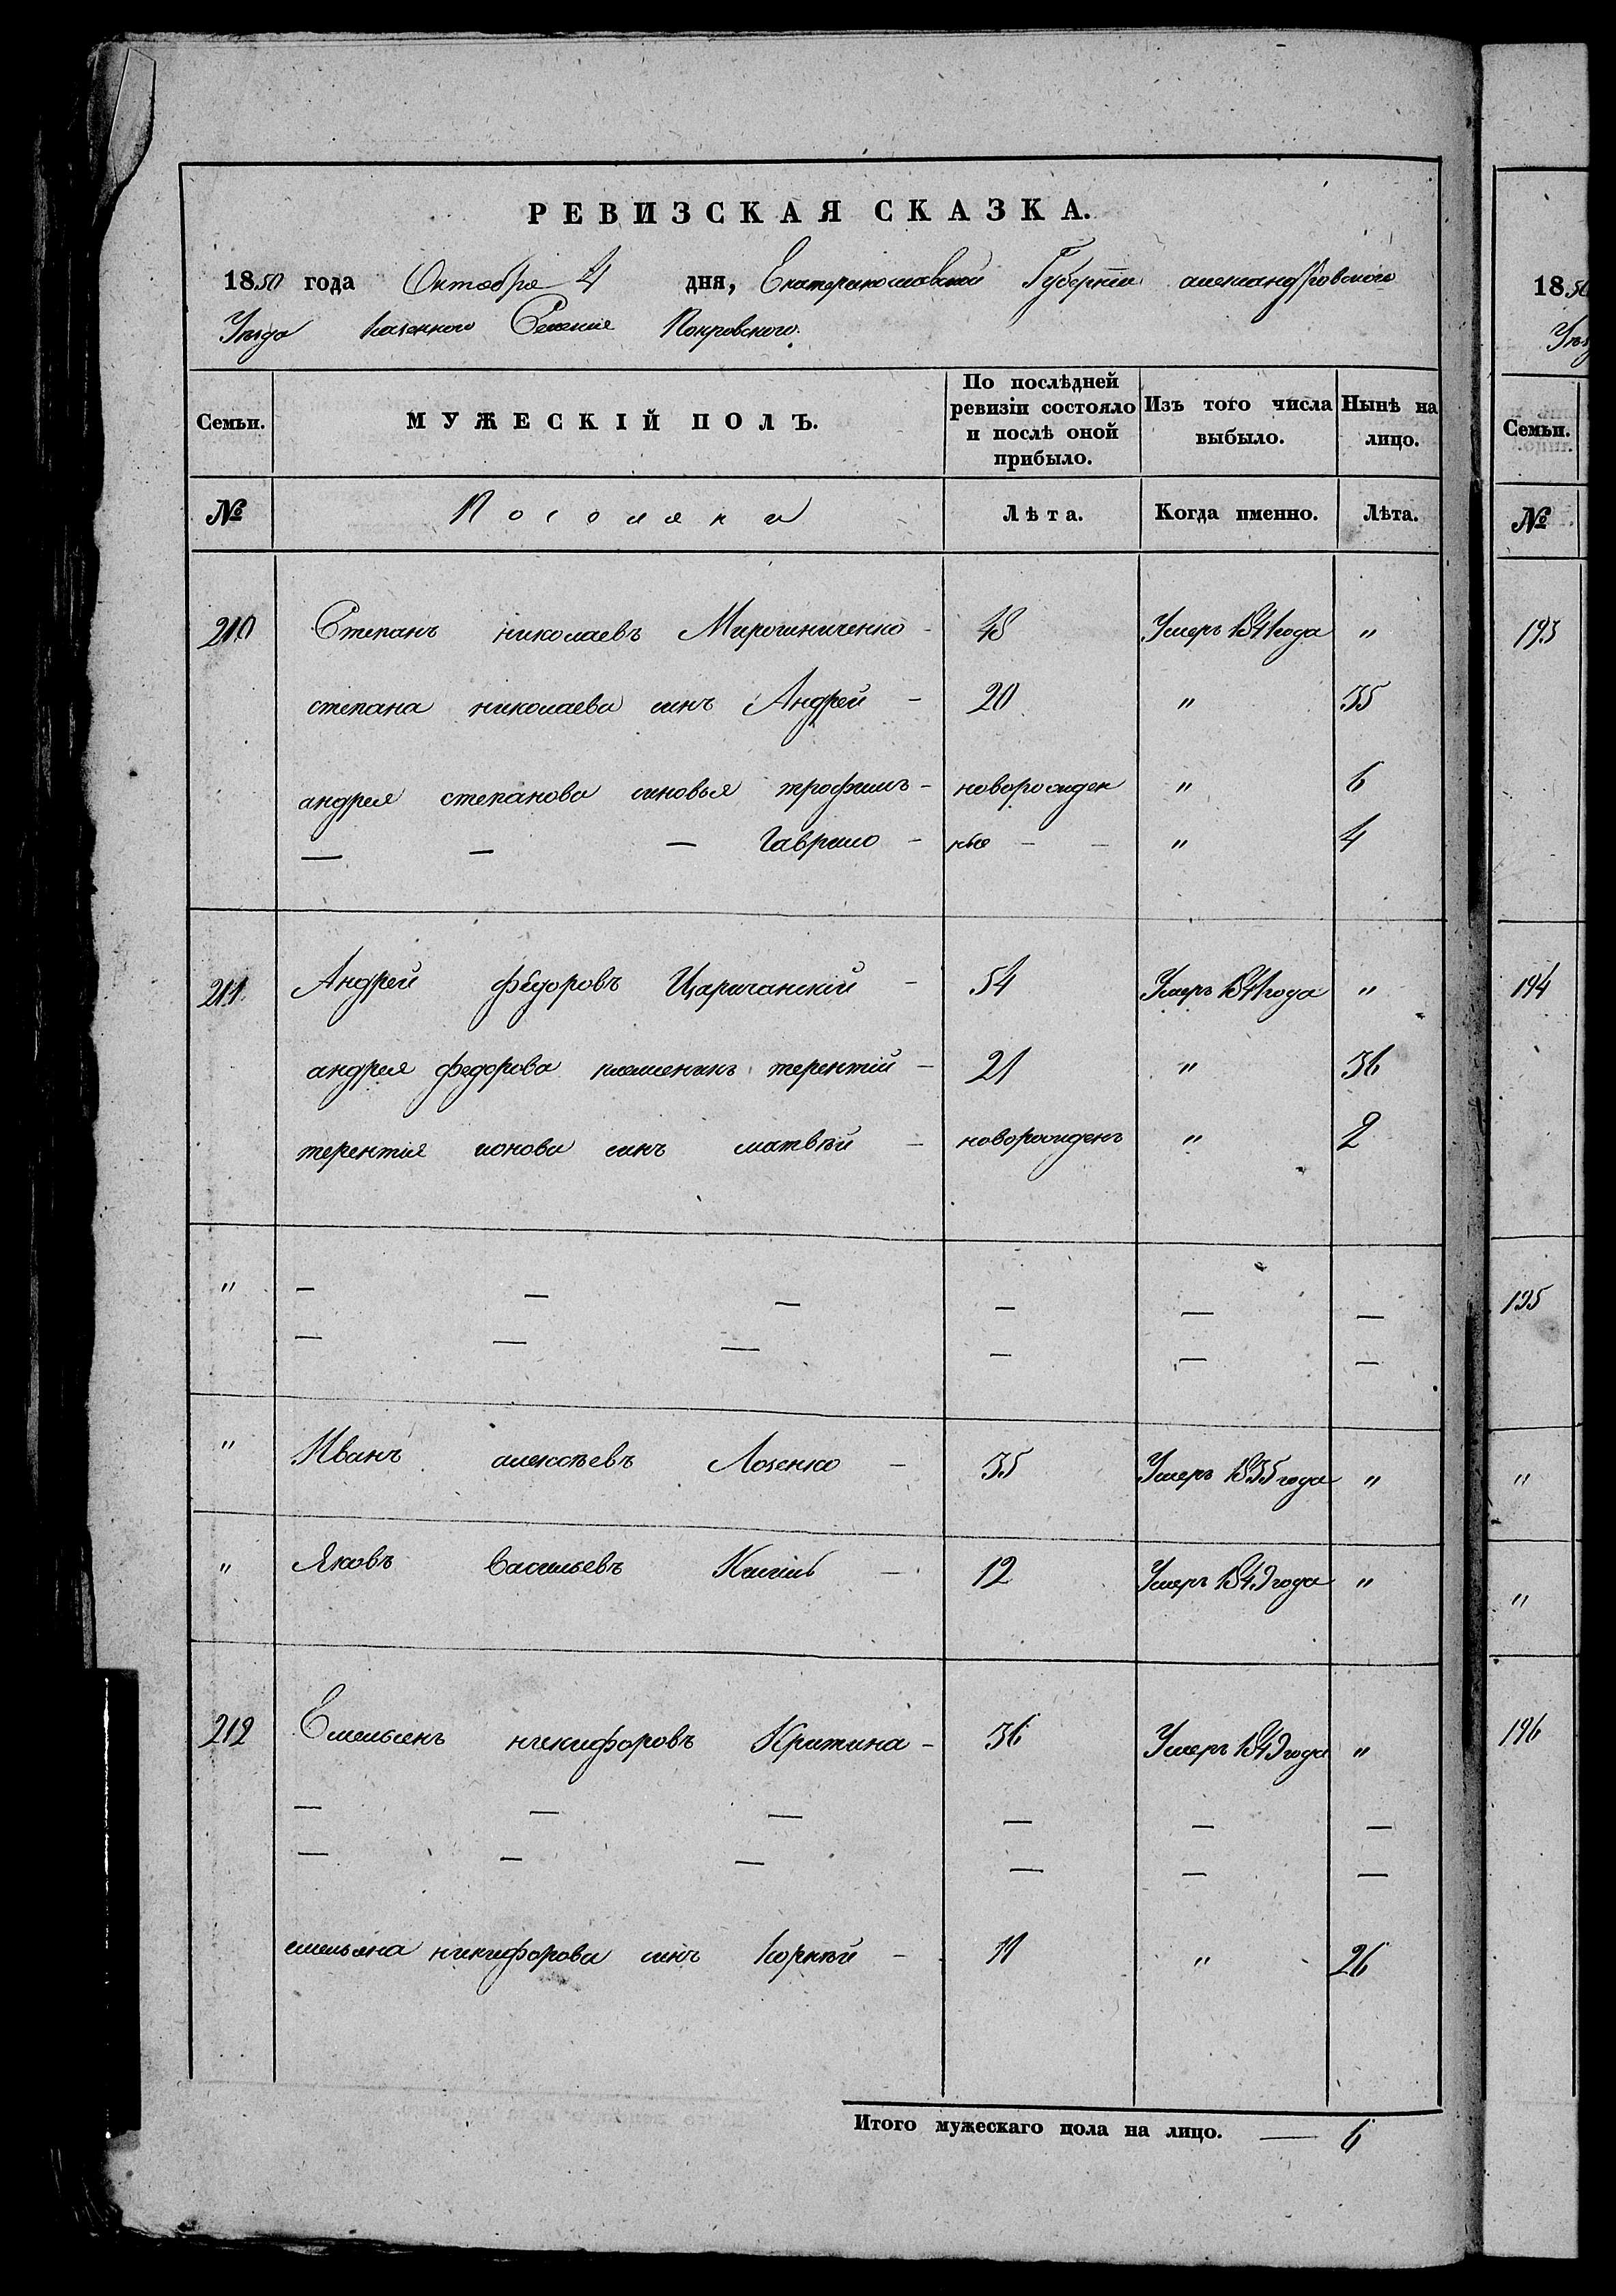 РЕВИЗСКАЯ СКАЗКА.
1850 года Октября 4 дня, Екатеринославской Губернiи александровского
Уѣзда казенного Селенiя Покровского.
Семьи. МУЖЕСКIЙ ПОЛЪ. По послѣдней ревизiи состояло и послѣ оной прибыло. Изъ того числа выбыло. Нынѣ на лицо.
№ Поселяне Лѣта. Когда именно. Лѣта.
210 Степанъ николаевъ Мирошниченко - 48 Умеръ 1841 года "
степана николаева синъ Андрей - 20 " 35
андрея степанова синовья трофимъ - новорожден " 6
— — — Гаврило - ные - - " 4
211 Андрей федоровъ Царичанскiй - 54 Умеръ 1841 года "
андрея федорова племеникъ терентiй - 21 " 36
терентiя ионова синъ матвѣй - новорожденъ " 2
" — — — — — —
— — — — — —
" Иванъ алексѣевъ Лозенко - 35 Умеръ 1835 года "
" Яковъ васильевъ - 12 Умеръ 1849 года "
212 Емельянъ никифоровъ Критина - 36 Умеръ 1849 года "
— — — — — —
— — — — — —
емельяна никифорова синъ корнѣй - 11 " 26
Итого мужескаго пола на лицо. — 6
1850
Уѣз
Семьи.
№
193
194
195
"
"
196